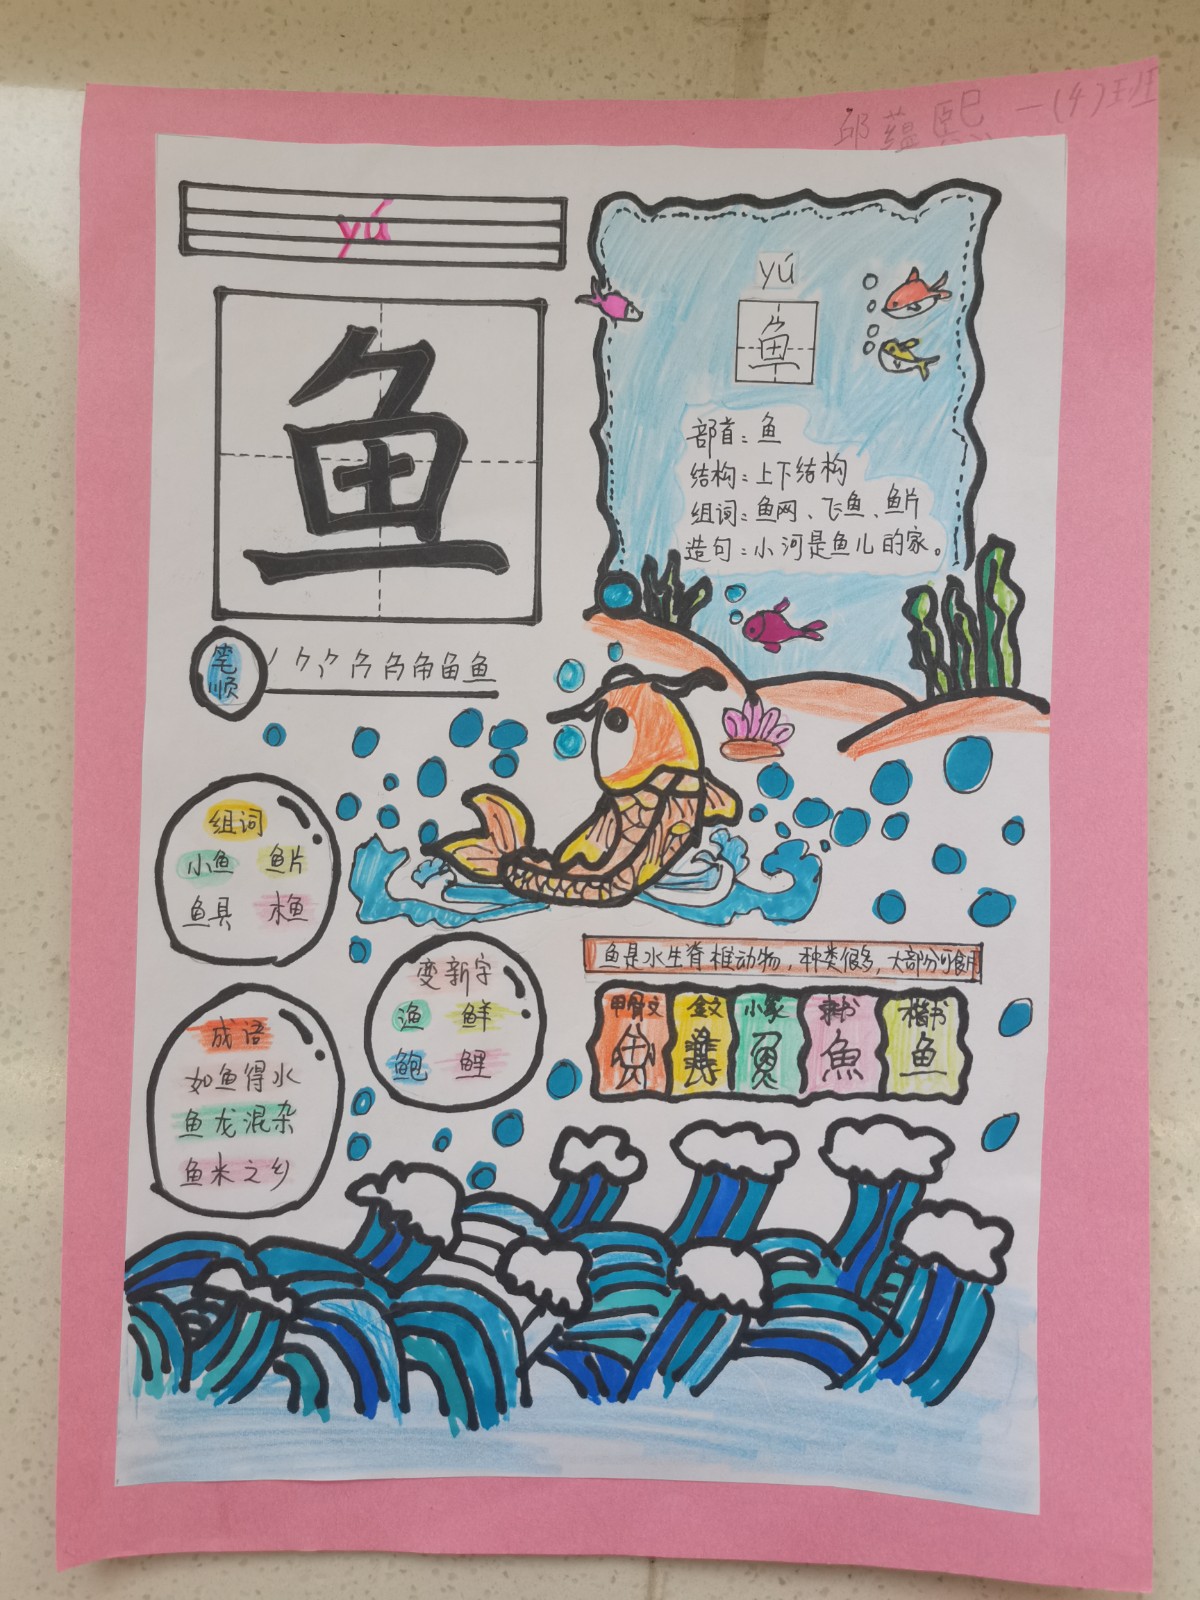 邱蕴熙 一(4)班
yú
鱼
yú
鱼
部首：鱼
结构：上下结构
组词：鱼网、飞鱼、鱼片
造句：小河是鱼儿的家。
笔顺
组词
小鱼 鱼片
鱼具 木鱼
变新字
渔 鲜
鲍 鲤
成语
如鱼得水
鱼龙混杂
鱼米之乡
鱼是水生脊椎动物，种类很多，大部分可食用
甲骨文 金文 小篆 隶书 楷书
魚 鱼